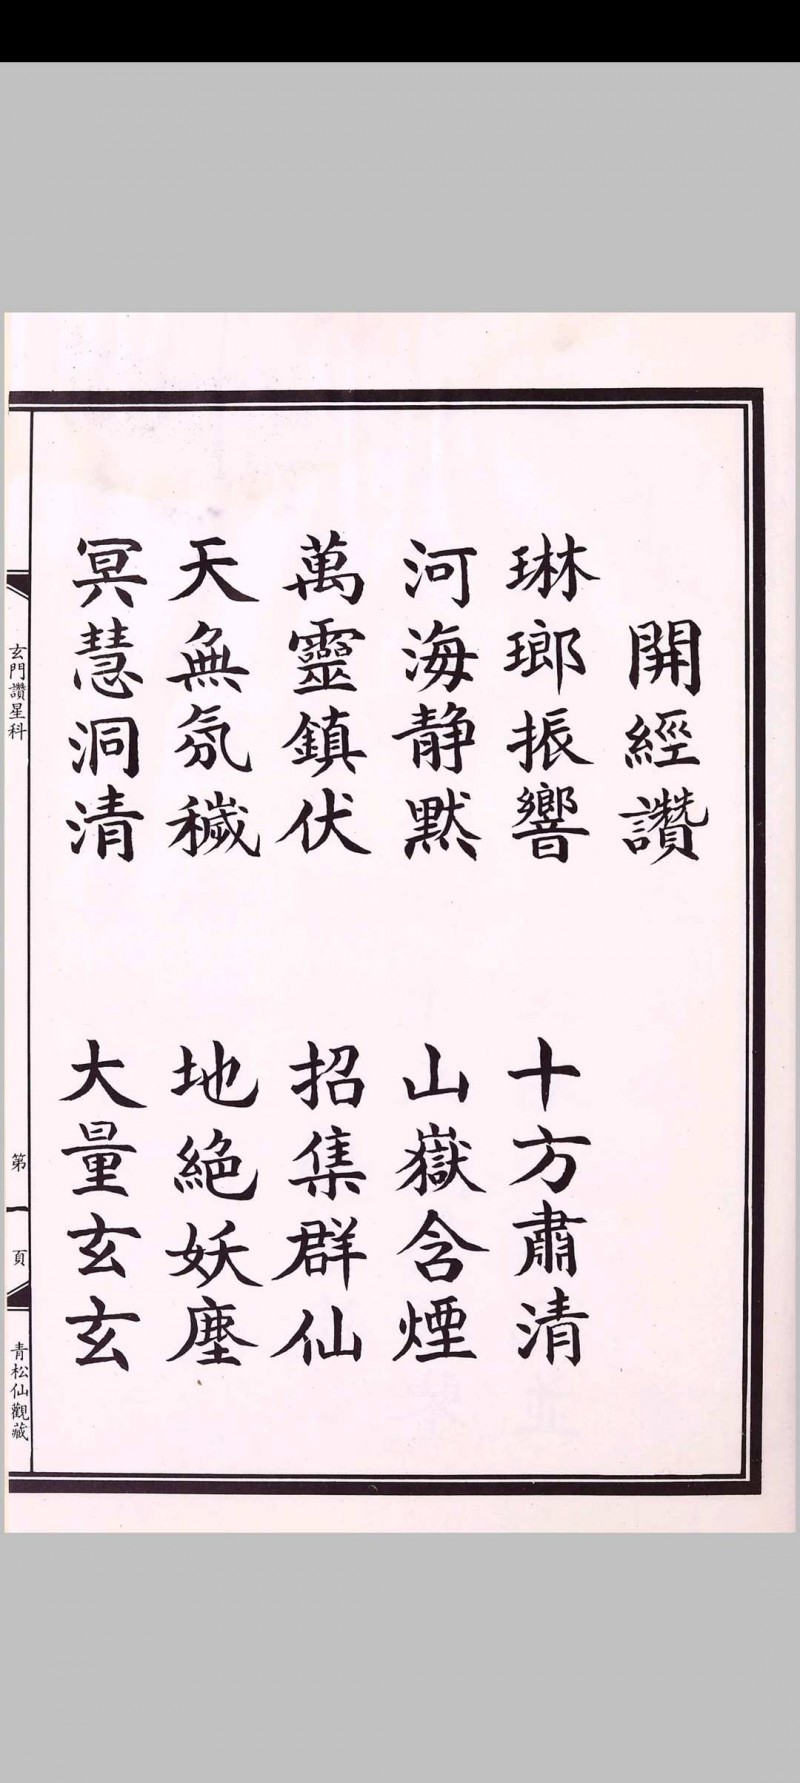 開經讚
琳瑯振響 十方肅清
河海静默 山嶽含煙
萬靈鎮伏 招集群仙
天無氛穢 地絕妖塵
冥慧洞清 大量玄玄
玄門讚星科
第一頁
青松仙觀藏